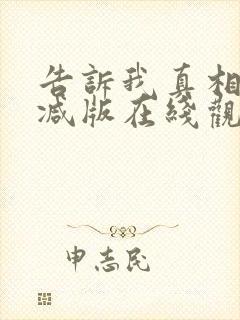 告訴我真相
减版在綫觀
申志民